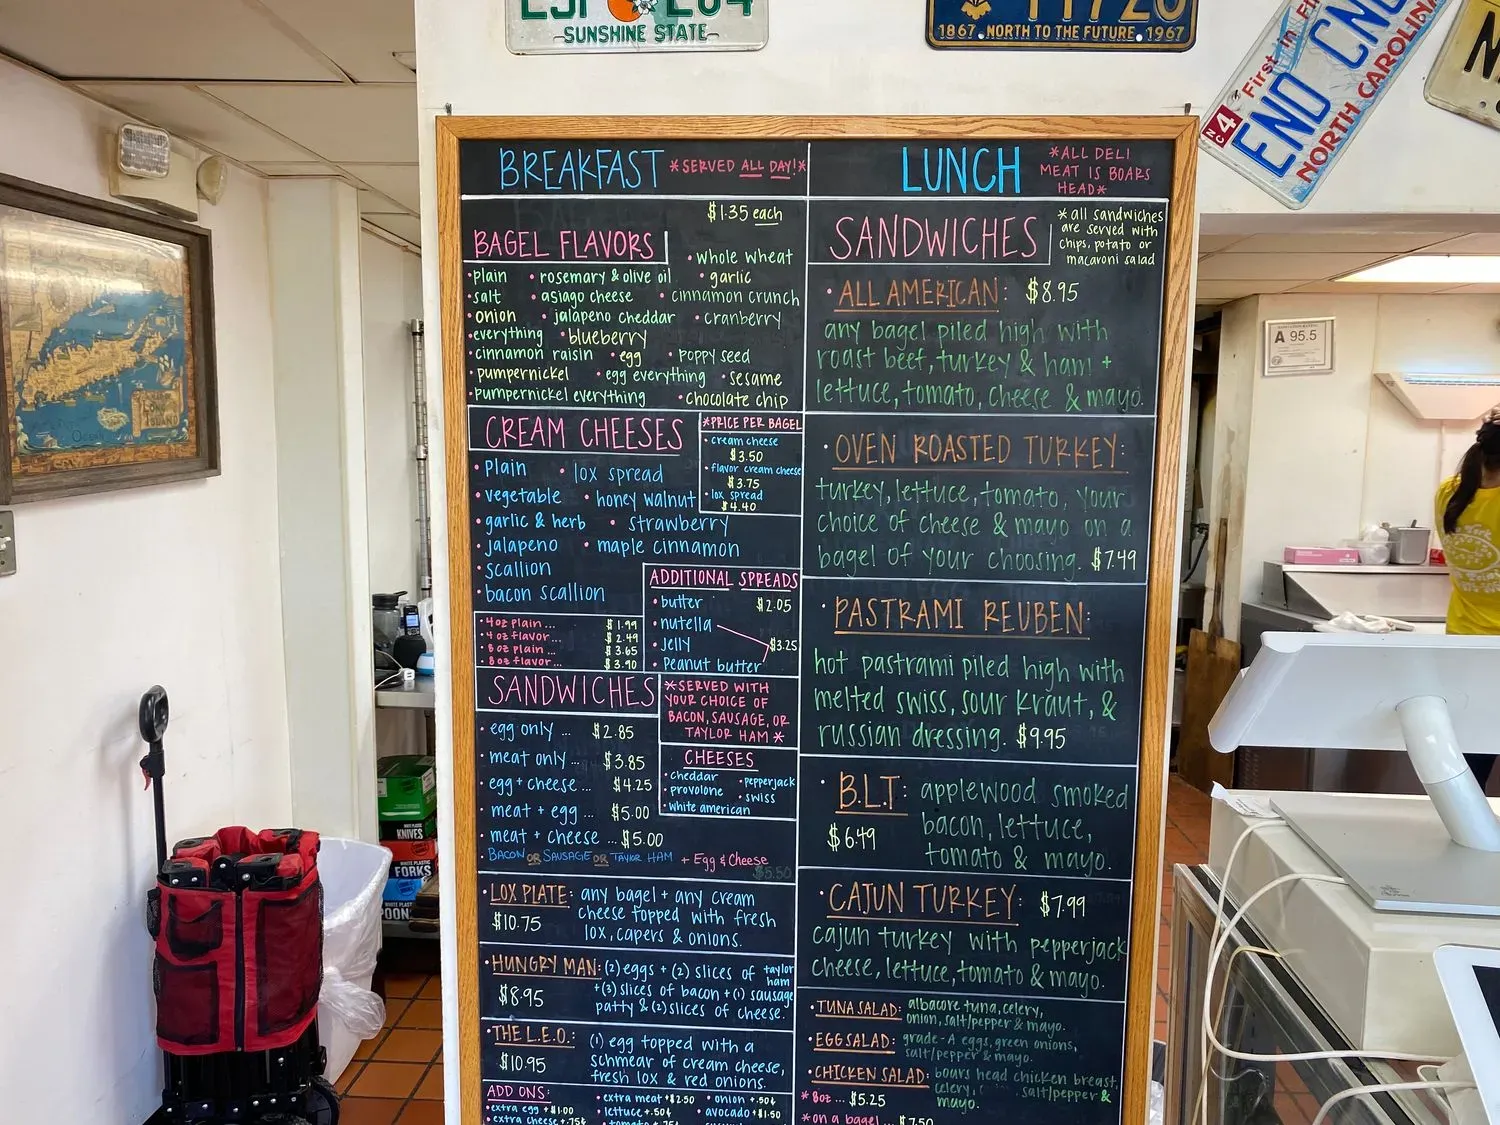 SUNSHINE STATE
1867 NORTH TO THE FUTURE 1967
First in Fl
NC 4
END CNC
NORTH CAROLINA
BREAKFAST *SERVED ALL DAY!*
$1.35 each
BAGEL FLAVORS
• whole wheat
• plain • rosemary & olive oil • garlic
• salt • asiago cheese • cinnamon crunch
• onion • jalapeno cheddar • cranberry
• everything • blueberry
• cinnamon raisin • egg • poppy seed
• pumpernickel • egg everything • sesame
• pumpernickel everything • chocolate chip
CREAM CHEESES
*PRICE PER BAGEL
• cream cheese
$3.50
• flavor cream cheese
$3.75
• lox spread
$4.40
• plain • lox spread
• vegetable • honey walnut
• garlic & herb • strawberry
• jalapeno • maple cinnamon
• scallion
• bacon scallion
• 4oz plain... $1.99
• 4oz flavor... $2.49
• 8oz plain... $3.65
• 8oz flavor... $3.90
ADDITIONAL SPREADS
• butter $2.05
• nutella
• jelly $3.25
• Peanut butter
SANDWICHES
*SERVED WITH
YOUR CHOICE OF
BACON, SAUSAGE, OR
TAYLOR HAM*
• egg only ... $2.85
• meat only ... $3.85
• egg + cheese ... $4.25
• meat + egg ... $5.00
• meat + cheese ... $5.00
• BACON OR SAUSAGE OR TAYLOR HAM + Egg & Cheese
$5.50
CHEESES
• cheddar • pepperjack
• provolone • swiss
• white american
• LOX PLATE: any bagel + any cream
$10.75 cheese topped with fresh
lox, capers & onions.
• HUNGRY MAN: (2) eggs + (2) slices of taylor ham
$8.95 + (3) slices of bacon + (1) sausage
patty & (2) slices of cheese.
• THE L.E.O.: (1) egg topped with a
$10.95 schmear of cream cheese,
fresh lox & red onions.
ADD ONS: • extra meat +$2.50 • onion +.50¢
• extra egg +$1.00 • lettuce +.50¢ • avocado +$1.50
• extra cheese +.75¢ • tomato +.75¢
LUNCH *ALL DELI
MEAT IS BOARS
HEAD*
SANDWICHES
*all sandwiches
are served with
chips, potato or
macaroni salad
• ALL AMERICAN: $8.95
any bagel piled high with
roast beef, turkey & ham! +
lettuce, tomato, cheese & mayo.
• OVEN ROASTED TURKEY:
turkey, lettuce, tomato, your
choice of cheese & mayo on a
bagel of your choosing. $7.49
• PASTRAMI REUBEN:
hot pastrami piled high with
melted swiss, sour kraut, &
russian dressing. $9.95
• B.L.T: applewood smoked
$6.49 bacon, lettuce,
tomato & mayo.
• CAJUN TURKEY: $7.99
cajun turkey with pepperjack
cheese, lettuce, tomato & mayo.
• TUNA SALAD: albacore tuna, celery,
onion, salt/pepper & mayo.
• EGG SALAD: grade-A eggs, green onions,
salt/pepper & mayo.
• CHICKEN SALAD: boars head chicken breast,
celery, salt/pepper &
mayo.
* 8oz ... $5.25
* on a bagel ... $7.50
A 95.5
KNIVES
WHITE PLASTIC
FORKS
WHITE PLAST
POON